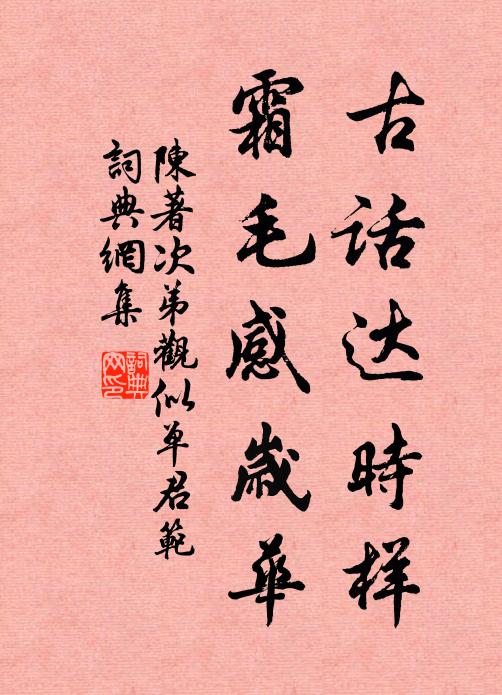 古话达時样
霜毛感歲華
陳著次弟觀似单君範
詞典網集
詞典
网印